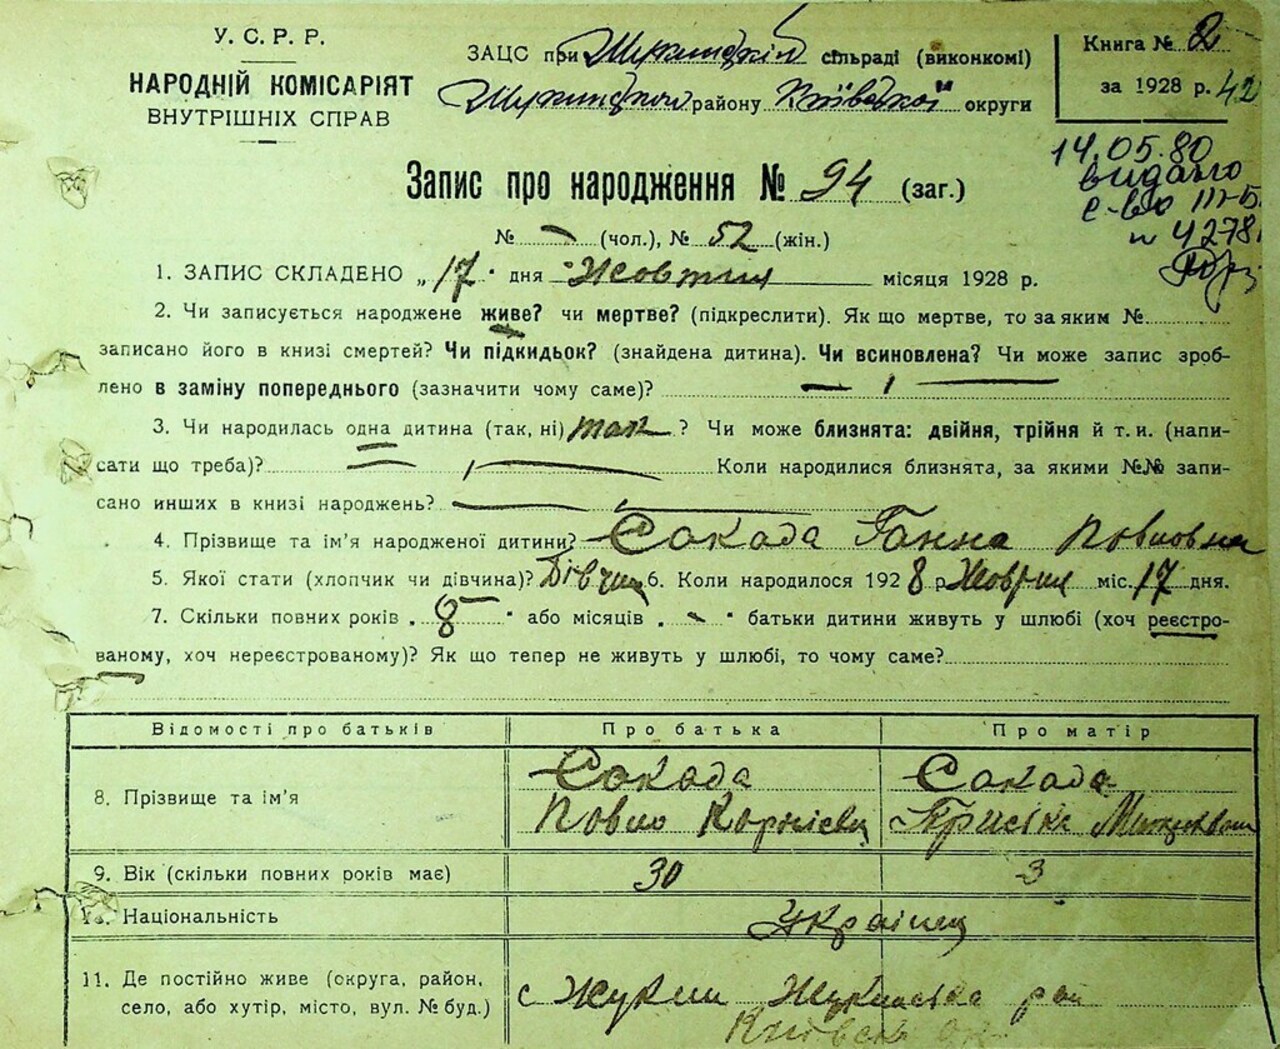 У. С. Р. Р.
НАРОДНІЙ КОМІСАРІЯТ
ВНУТРІШНІХ СПРАВ
ЗАЦС при Жукинській сільраді (виконкомі)
Жукинського району Київської округи
Книга № 2
за 1928 р. 42
14.05.80
видано
с-во III-БК
№ 4278
Запис про народження № 94 (заг.)
№ — (чол.), № 52 (жін.)
1. ЗАПИС СКЛАДЕНО „17" дня Жовтня місяця 1928 р.
2. Чи записується народжене живе? чи мертве? (підкреслити). Як що мертве, то за яким №
записано його в книзі смертей? Чи підкидьок? (знайдена дитина). Чи всиновлена? Чи може запис зроб-
лено в заміну попереднього (зазначити чому саме)? —
3. Чи народилась одна дитина (так, ні) так ? Чи може близнята: двійня, трійня й т. и. (напи-
сати що треба)? — Коли народилися близнята, за якими №№ запи-
сано инших в книзі народжень? —
4. Прізвище та ім'я народженої дитини? Сокада Ганна Повловна
5. Якої стати (хлопчик чи дівчина)? Дівчин 6. Коли народилося 1928 р. Жовтня міс. 17 дня.
7. Скільки повних років „8" або місяців „—" батьки дитини живуть у шлюбі (хоч реєстро-
ваному, хоч нереєстрованому)? Як що тепер не живуть у шлюбі, то чому саме?
Відомості про батьків Про батька Про матір
8. Прізвище та ім'я Сокада Сокада
Повло Корнієв
9. Вік (скільки повних років має) 30 3
10. Національність Українец
11. Де постійно живе (округа, район,
село, або хутір, місто, вул. № буд.) с Жукин Жукинська рай
Київськ ок